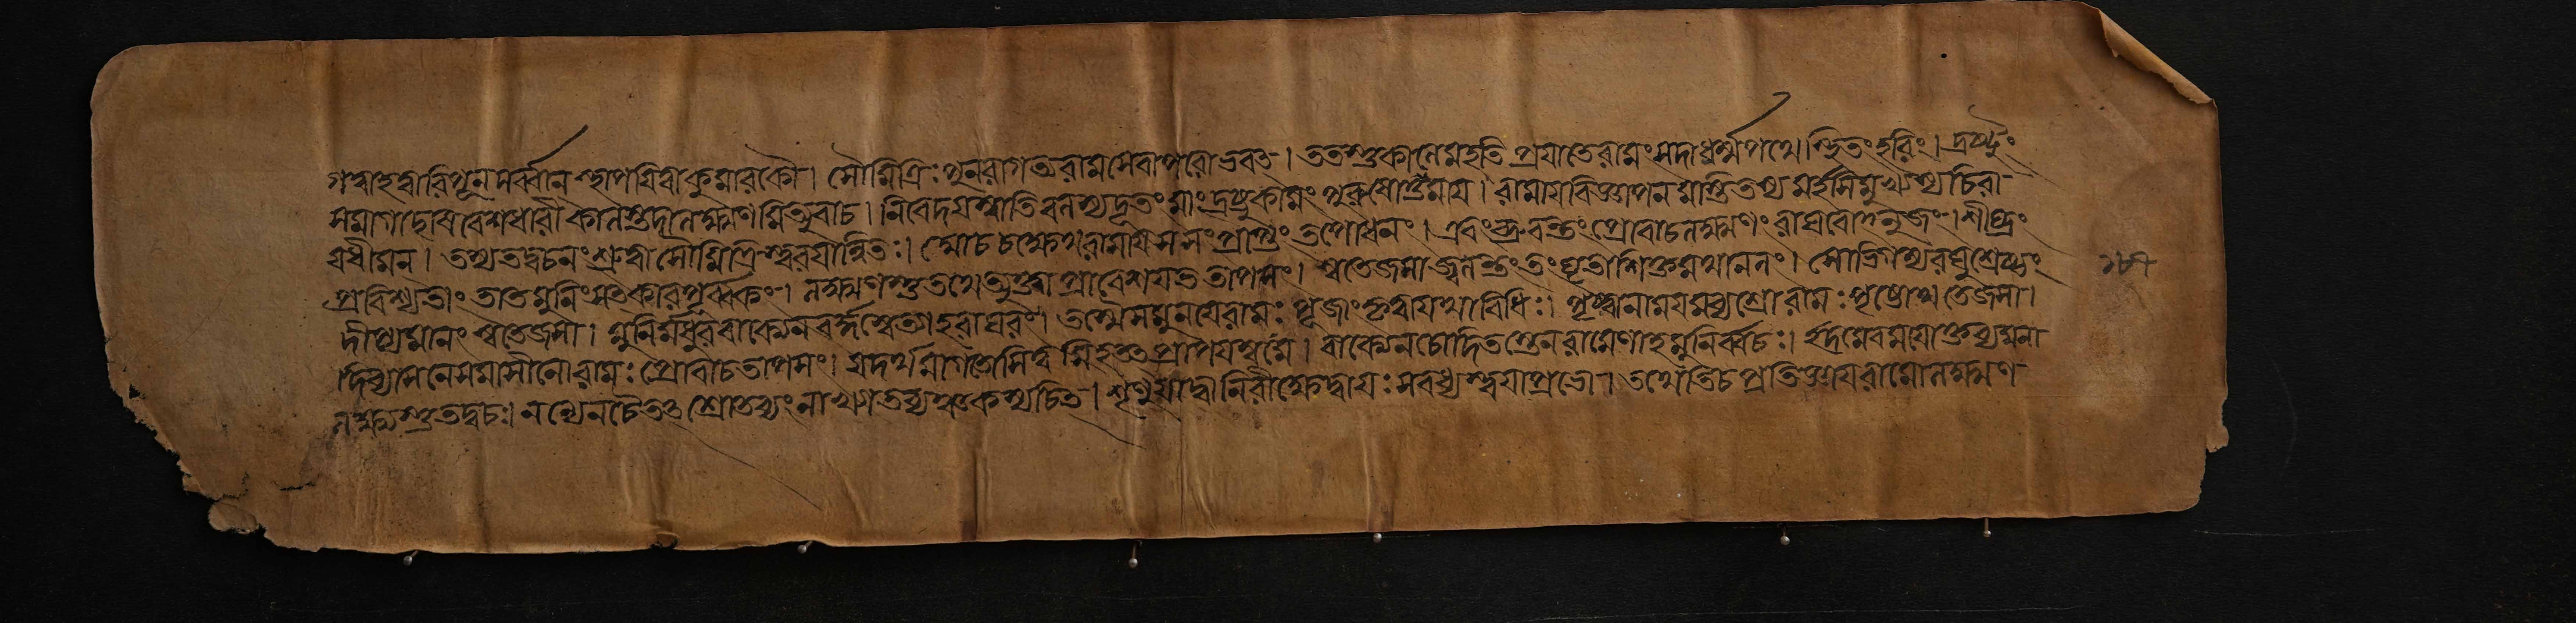 গত্বাহত্বারিপূন্সর্ব্বান্স্থাপয়িত্বাকুমারকৌ। সৌমিত্রিঃপুনরাগত্যরামসেবাপরোভবত্। ততস্তুকালেমহতিপ্রযাতেরামংসদাধর্ম্মপথেস্থিতংহরিং। দ্রষ্টুং
সমাগাদৃষিবেশধারীকালস্তদালক্ষ্মণমিত্যুবাচ। নিবেদয়স্বাতিবলস্যদূতংমাংদ্রষ্টুকামংপুরুষোত্তমায়। রামায়বিজ্ঞাপনমস্তিতস্যমহর্ষিমুখ্যস্যচিরা-
য়ধীমন্। তস্যতদ্বচনংশ্রুত্বাসৌমিত্রিস্ত্বরয়ান্বিতঃ। আচচক্ষেথরামায়সসংপ্রাপ্তংতপোধনং। এবংব্রুবন্তংপ্রোবাচলক্ষ্মণংরাঘবোনুজং। শীঘ্রং
প্রবিশ্যতাংতাতমুনিঃসৎকারপূর্ব্বকং। লক্ষ্মণস্তুতথেত্যুক্ত্বাপ্রাবেশয়ততাপসং। স্বতেজসাজ্বলন্তংতংঘৃতাশিক্তমথানলং। সোভিগম্যরঘুশ্রেষ্ঠং
দীপ্যমানংস্বতেজসা। মুনির্ম্মধুরবাক্যেনবর্দ্ধস্বেত্যাহরাঘবং। তস্মৈসমুনয়েরামঃপূজাংকৃত্বাযথাবিধিঃ। পৃষ্ট্বানাময়মব্যগ্রোরামঃপৃষ্টোথতেজসা।
দিব্যাসনেসমাসীনোরামঃপ্রোবাচতাপসং। যদর্থমাগতোসিত্বমিহতৎপ্রাপয়স্বমে। বাক্যেনচোদিতস্তেনরামেণাহমুনির্ব্বচঃ। দ্বন্দ্বমেবপ্রয়োক্তব্যমনা
লক্ষ্যস্তুতদ্বচঃ। নান্যেনচৈতৎশ্রোতব্যংনাখ্যাতব্যঞ্চকস্যচিত্। শৃণুয়াদ্বানিরীক্ষেদ্বাযঃসবধ্যস্ত্বয়াপ্রভো। তথেতিচপ্রতিজ্ঞায়রামোলক্ষ্মণ-
১৮৭